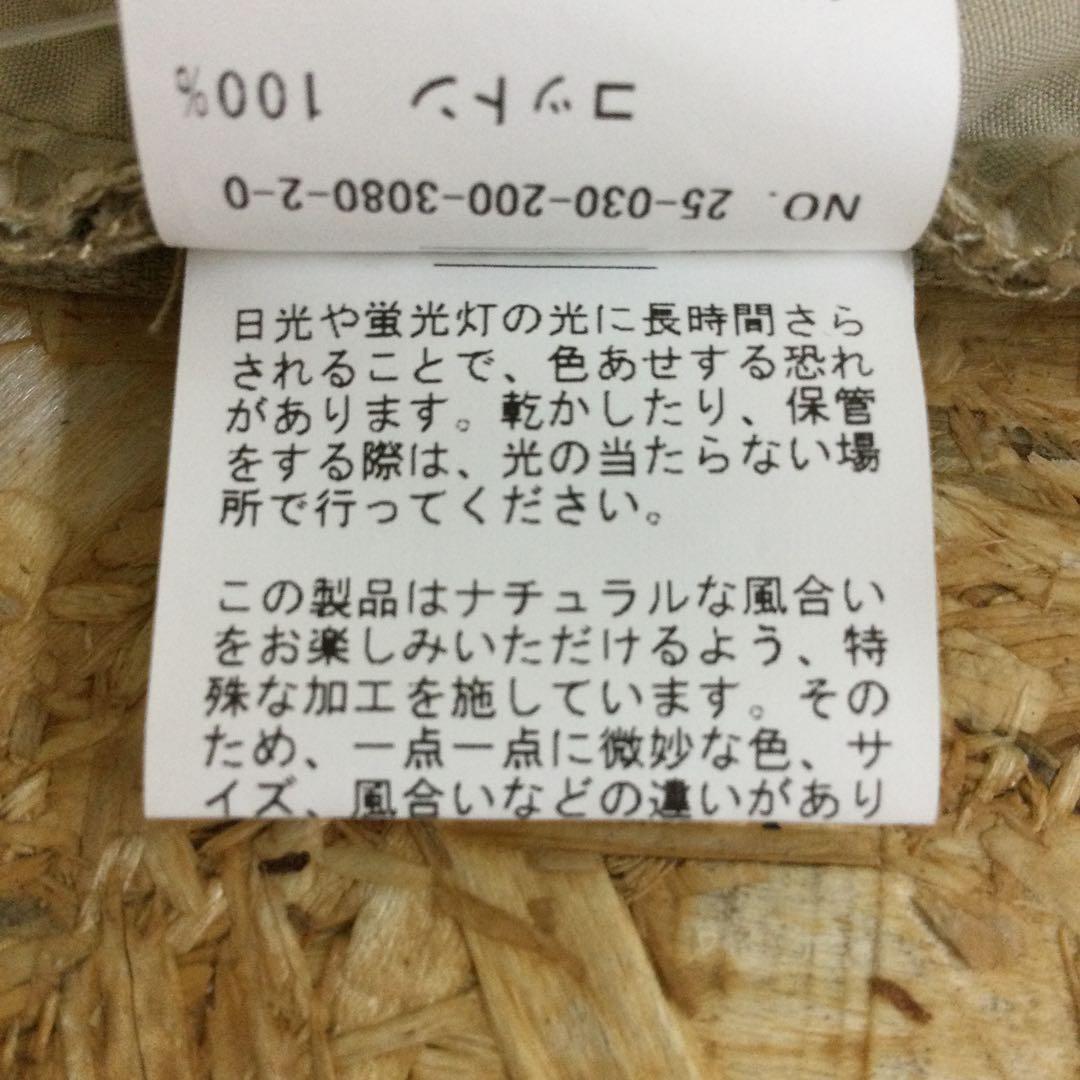 コットン 100%
NO. 25-030-200-3080-2-0
日光や蛍光灯の光に長時間さら
されることで、色あせする恐れ
があります。乾かしたり、保管
をする際は、光の当たらない場
所で行ってください。
この製品はナチュラルな風合い
をお楽しみいただけるよう、特
殊な加工を施しています。その
ため、一点一点に微妙な色、サ
イズ、風合いなどの違いがあり